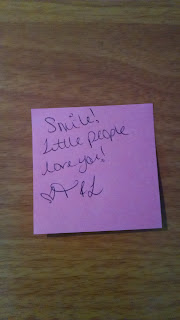 Smile!
Little people
love you!
& L